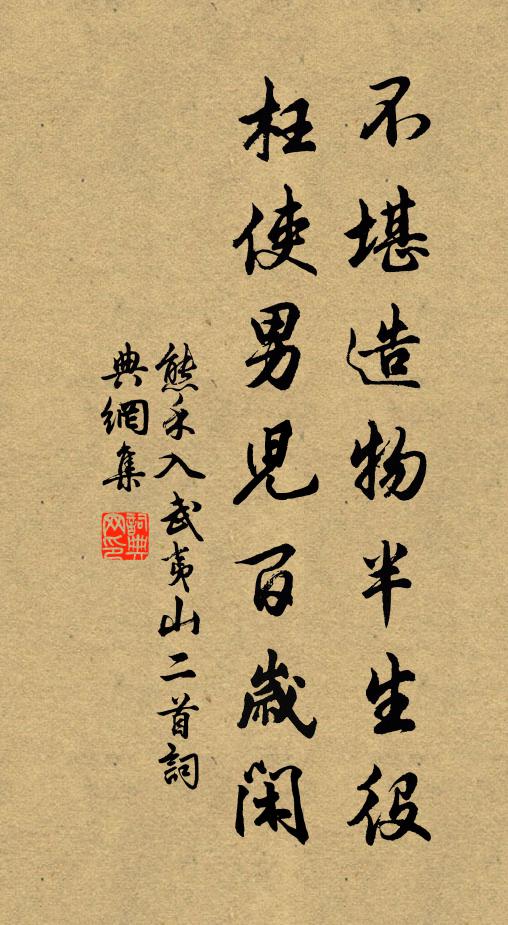 不堪造物半生役
枉使男兒百歲閑
熊禾入武夷山二首詞
典網集
詞典网印